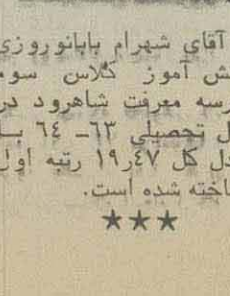 آقای شهرام بابانوروزی
ش آموز کلاس سوم
رسه معرفت شاهرود در
ل تحصیلی ۶۳ـ ۶۴ بـا
دل کل ۴۷ر۱۹ رتبه اول
اخته شده است.
★★★